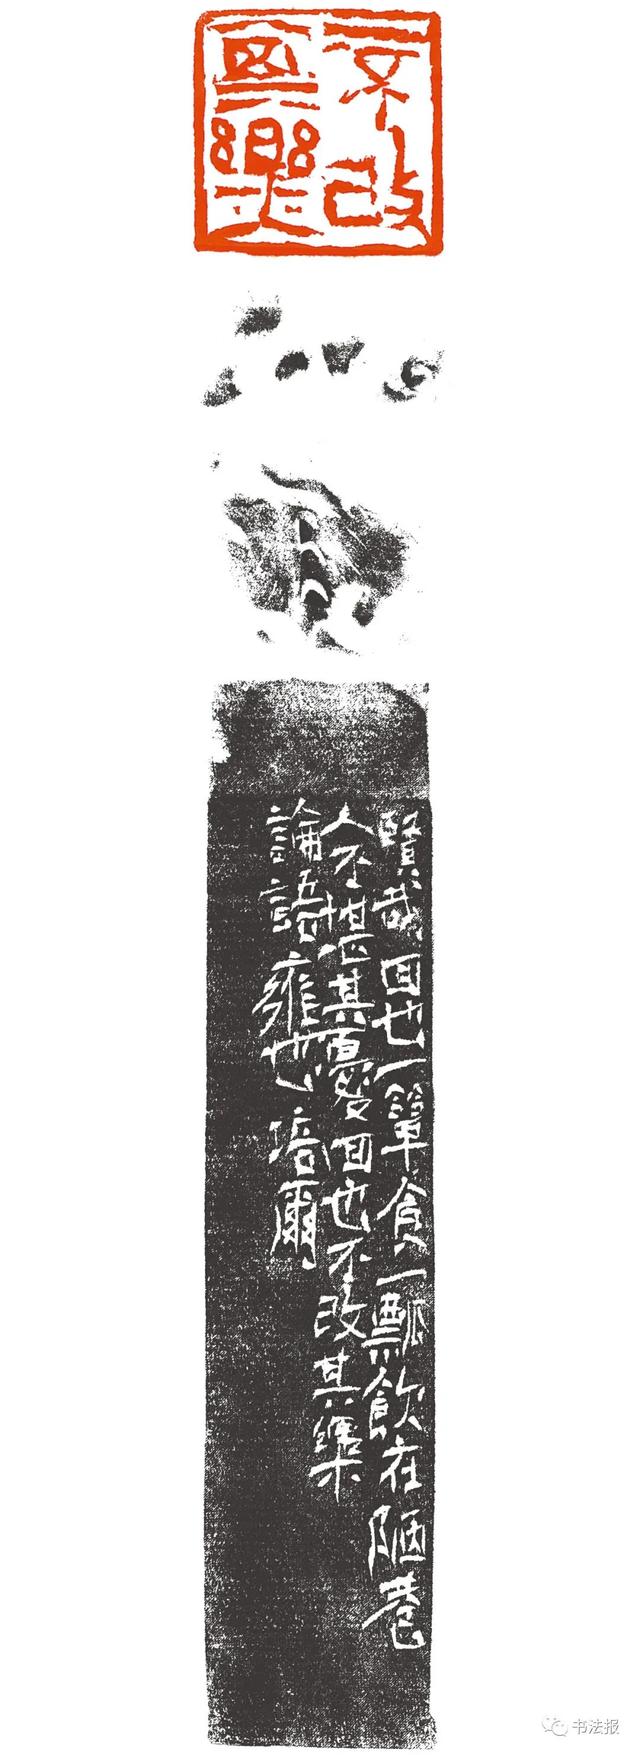 不改
其樂
賢哉回也一簞食一瓢飲在陋巷
人不堪其憂回也不改其樂
論語雍也培爾
书法报